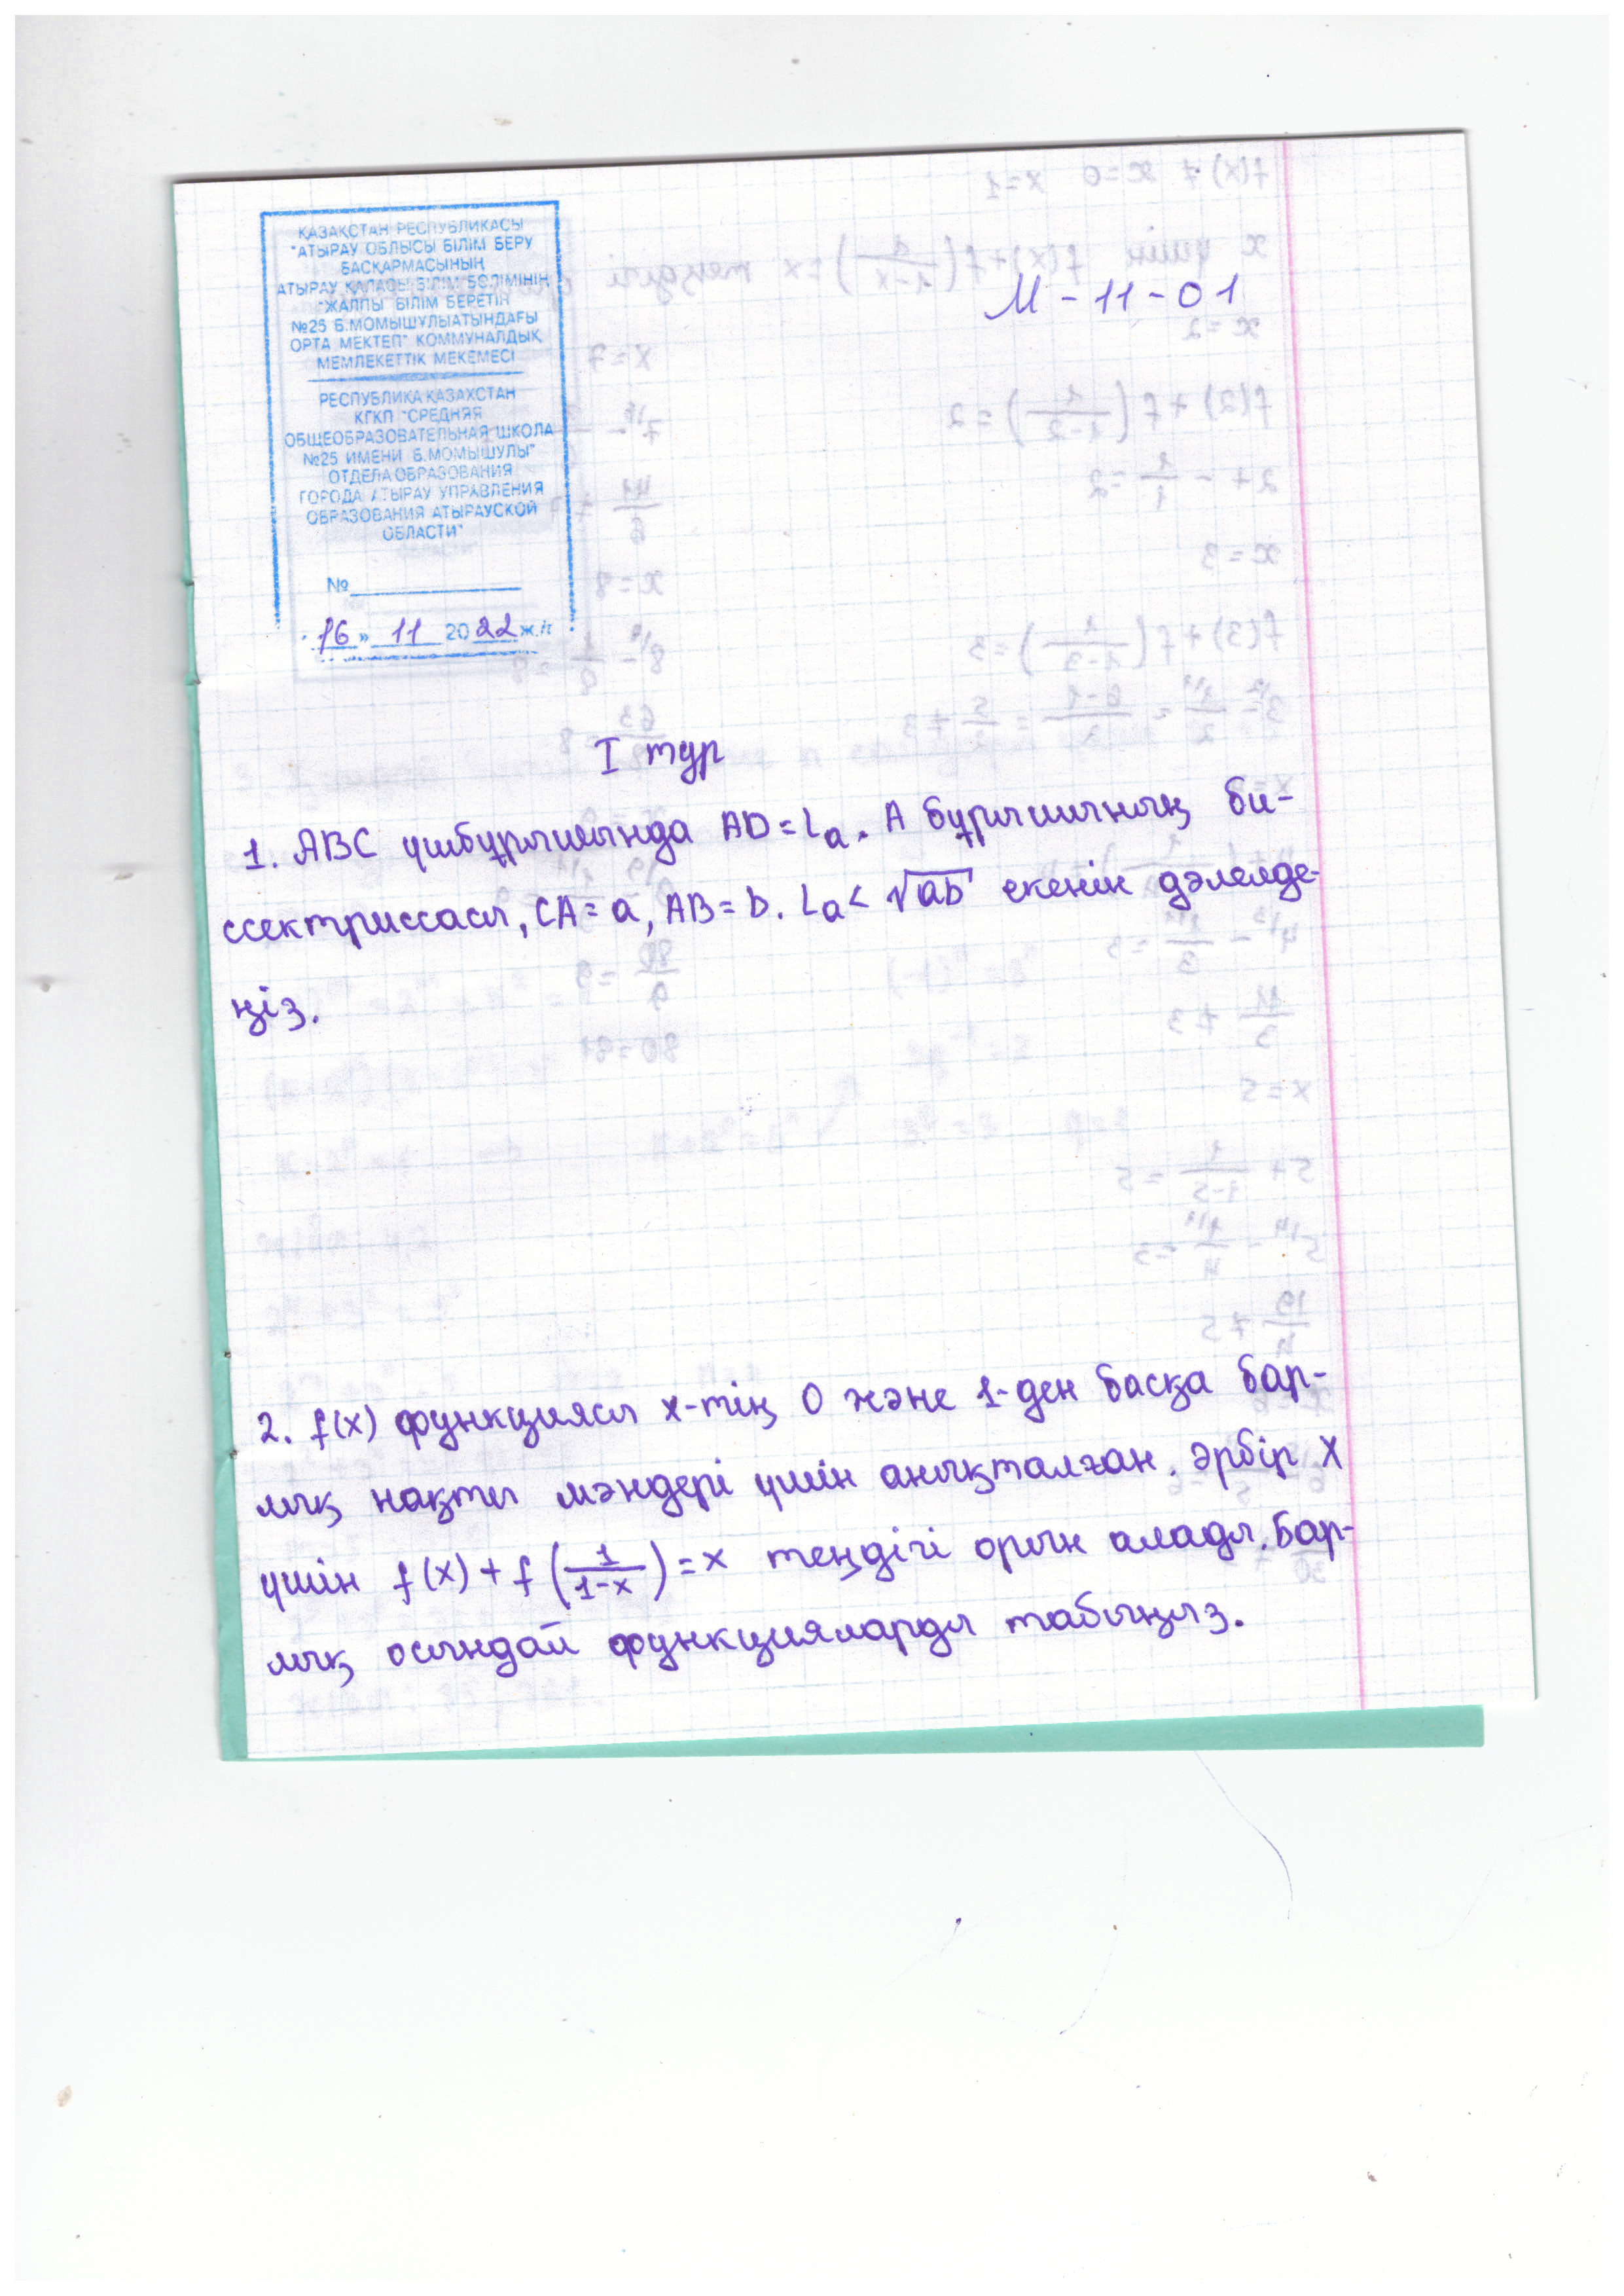 ҚАЗАҚСТАН РЕСПУБЛИКАСЫ
"АТЫРАУ ОБЛЫСЫ БІЛІМ БЕРУ
БАСҚАРМАСЫНЫҢ
АТЫРАУ ҚАЛАСЫ БІЛІМ БӨЛІМІНІҢ
"ЖАЛПЫ БІЛІМ БЕРЕТІН
№25 Б.МОМЫШҰЛЫАТЫНДАҒЫ
ОРТА МЕКТЕП" КОММУНАЛДЫҚ
МЕМЛЕКЕТТІК МЕКЕМЕСІ
РЕСПУБЛИКА КАЗАХСТАН
КГКП "СРЕДНЯЯ
ОБЩЕОБРАЗОВАТЕЛЬНАЯ ШКОЛА
№25 ИМЕНИ Б.МОМЫШУЛЫ"
ОТДЕЛА ОБРАЗОВАНИЯ
ГОРОДА АТЫРАУ УПРАВЛЕНИЯ
ОБРАЗОВАНИЯ АТЫРАУСКОЙ
ОБЛАСТИ"
№
"16" 11 2022 ж./г
М-11-01
I тур
1. ABC үшбұрышында AD=La. A бұрышының би-
ссектриссасы, CA=a, AB=b. La< √ab екенін дәлелде-
ңіз.
2. f(x) функциясы x-тің 0 және 1-ден басқа бар-
лық нақты мәндері үшін анықталған. әрбір X
үшін f(x)+f(1/(1-x))=x теңдігі орын алады. Бар-
лық осындай функцияларды табыңыз.